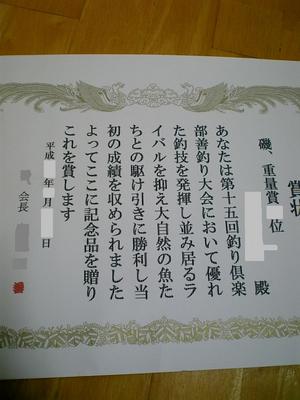 賞状
磯、重量賞 位
殿
あなたは第十五回釣り倶楽
部善釣り大会において優れ
た釣技を発揮し並み居るラ
イバルを抑え大自然の魚た
ちとの駆け引きに勝利し当
初の成績を収められました
よってここに記念品を贈り
これを賞します
平成 年 月 日
会長